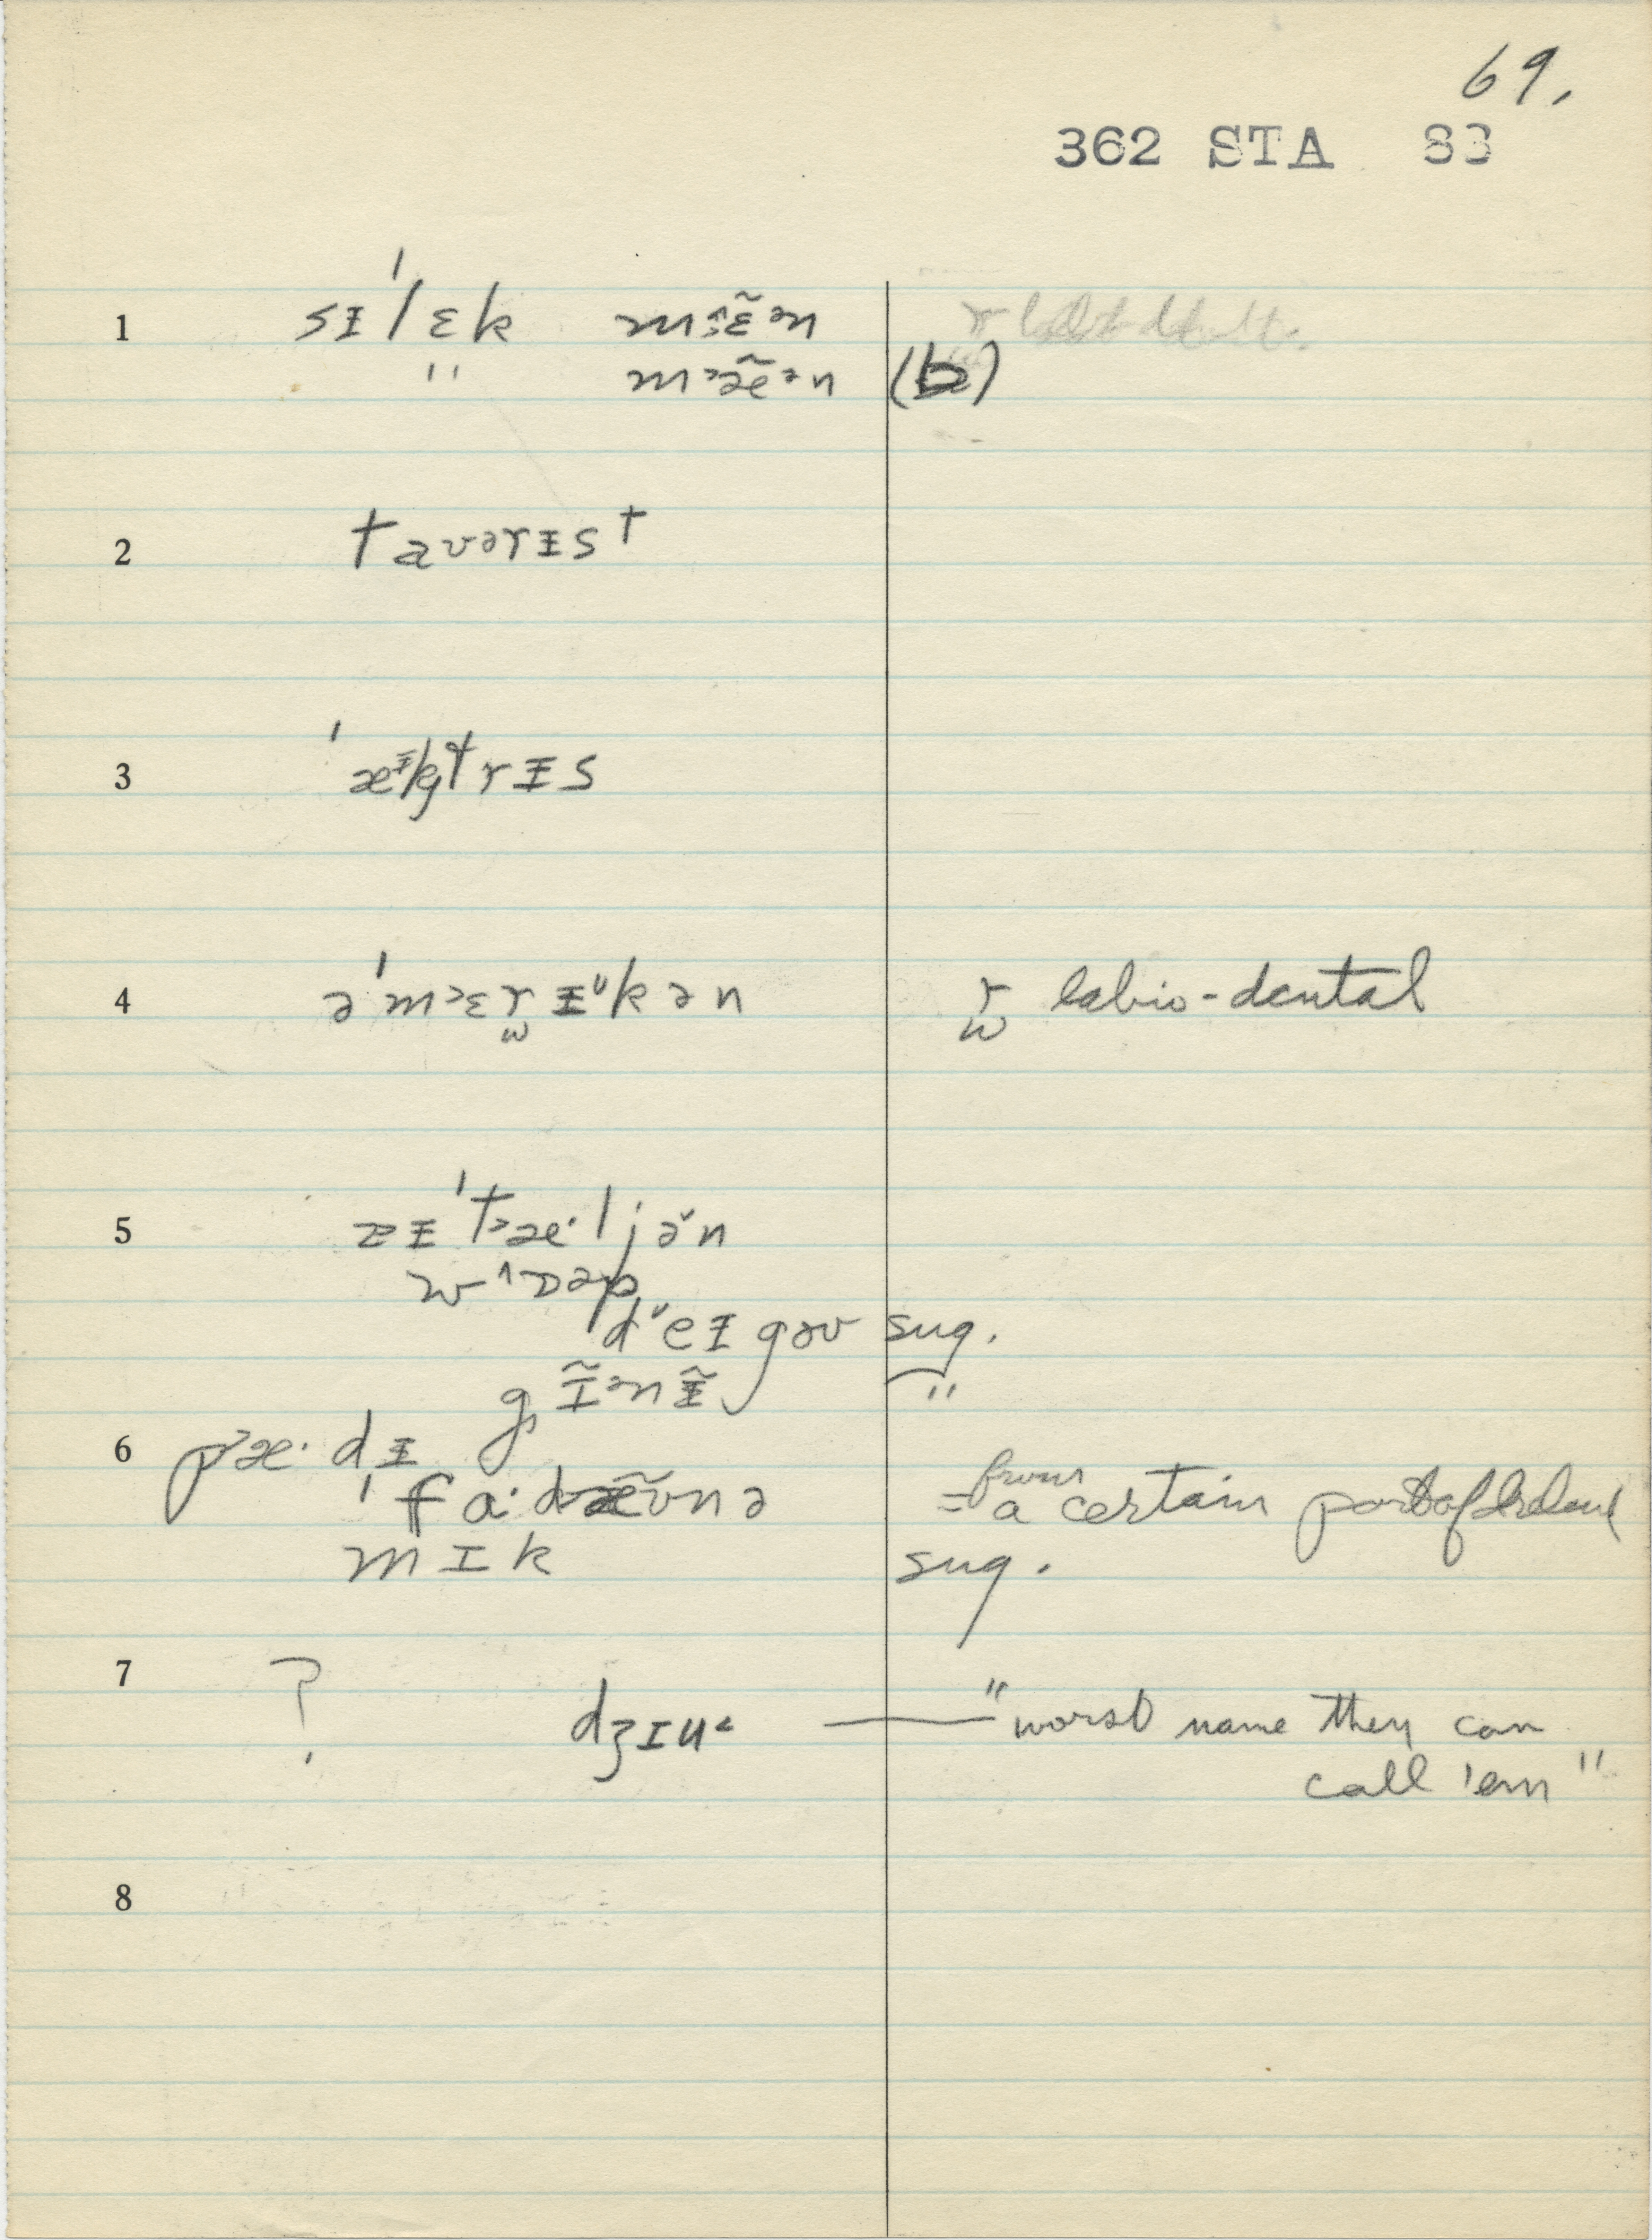 69.
362 STA 83
1 sᵻˈlɛk mːɛ̃ᵊn
" m˃æ̃ᵊn (b)
2 tavərᵻst
3 ˈæᵻktrᵻs
4 əˈm˃ɛr̫ᵻ̆kən r̫ labio-dental
5 zᵻˈt˃æ·ljə̆n
w^ɒəp
d˅eᵻgəʊ sug.
gĩᵊnᵻ̃ "
6 p˃æ·dᵻ
ˈfɑ·dæ̃ʊnə = from a certain part of Ireland
mɪk sug.
7 ? dʒɪu˂ — "worst name they can
call 'em"
8